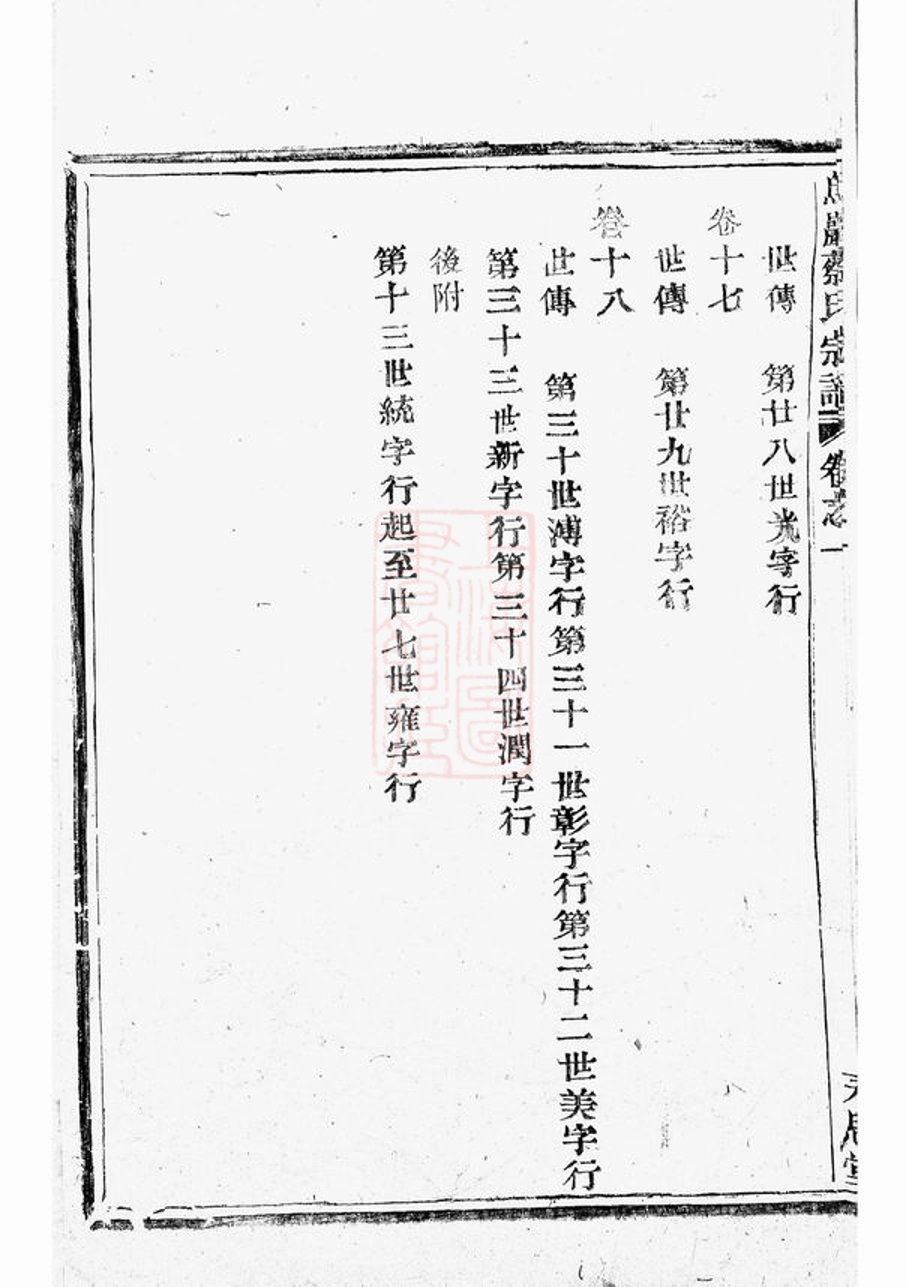 蔡氏宗譜 卷之一
世傳 第廿八世光字行
卷十七
世傳 第廿九世裕字行
卷十八
世傳 第三十世溥字行第三十一世彰字行第三十二世美字行
第三十三世新字行第三十四世潤字行
後附
第十三世統字行起至廿七世雍字行
上海圖書館藏